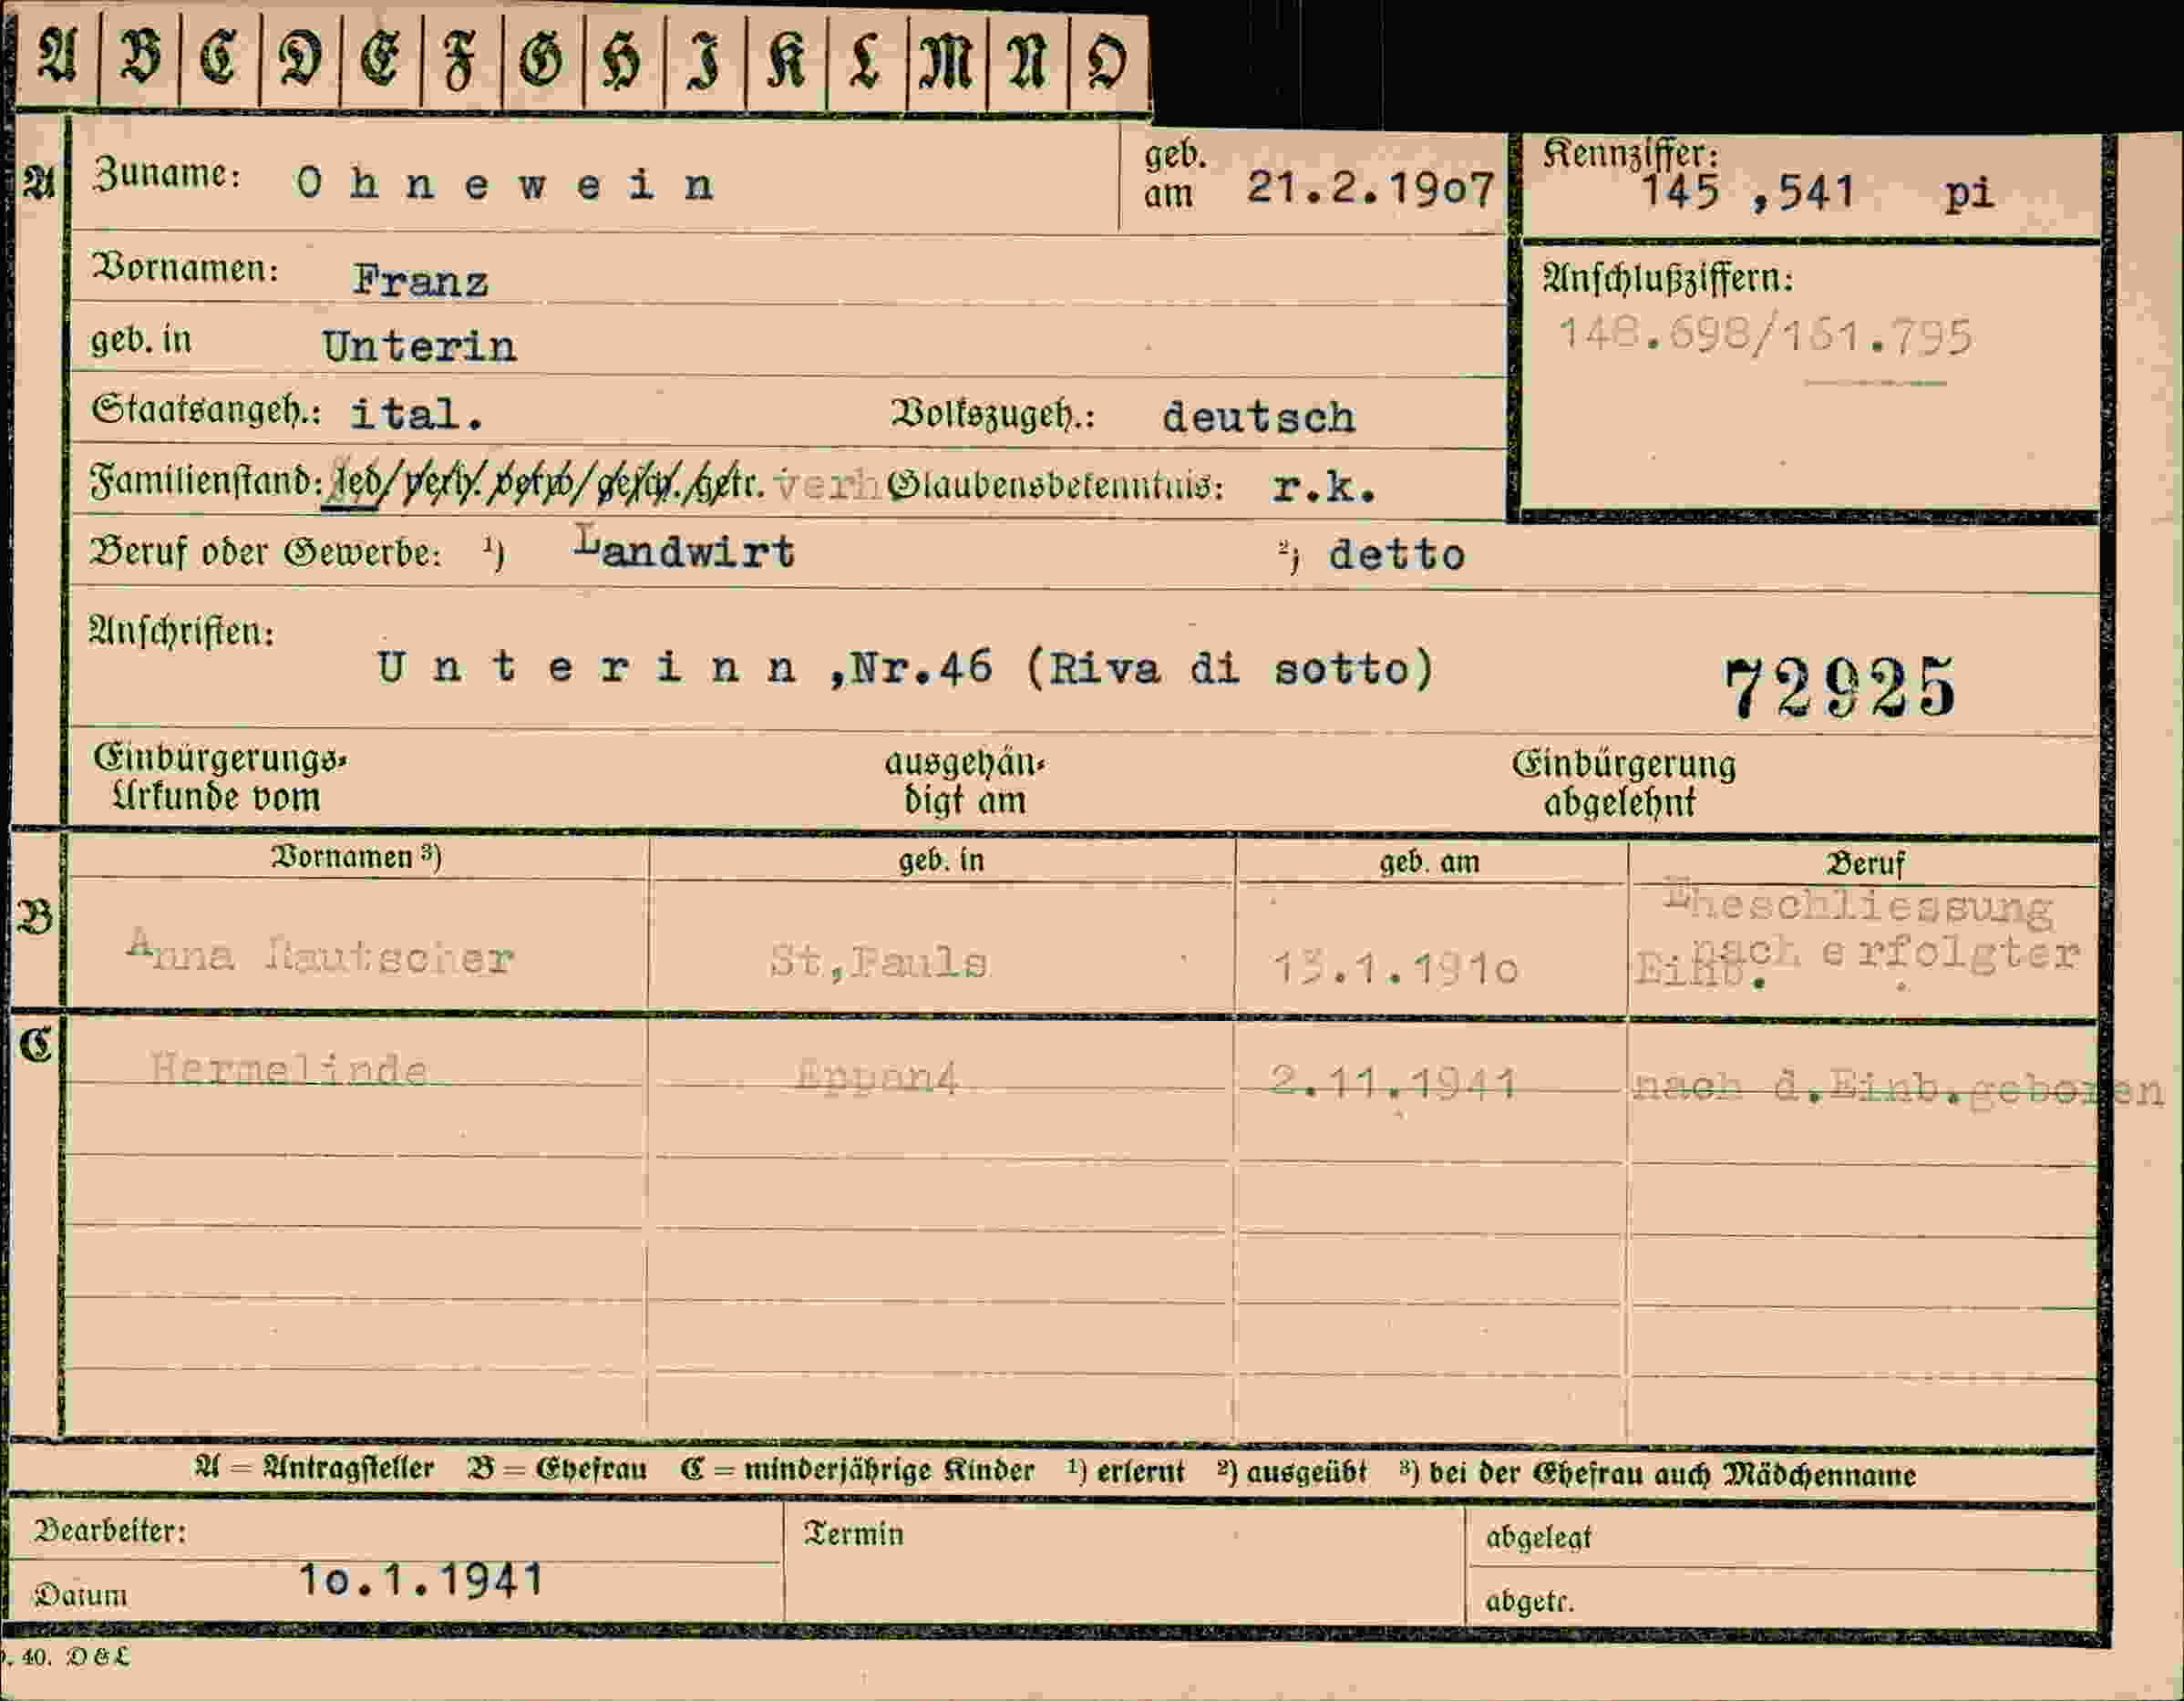 A B C D E F G H I K L M N O
A Zuname: Ohnewein geb. am 21.2.1907 Kennziffer: 145 ,541 pi
Vornamen: Franz
Anschlußziffern:
geb. in Unterin
148.698/161.795
Staatsangeh.: ital. Volkszugeh.: deutsch
Familienstand: led/verh. verw/gesch./getr. verh Glaubensbekenntnis: r.k.
Beruf oder Gewerbe: ¹) Landwirt ²) detto
Anschriften:
Unterinn ,Nr.46 (Riva di sotto) 72925
Einbürgerungs-
Urkunde vom
ausgehän-
digt am
Einbürgerung
abgelehnt
Vornamen ³) geb. in geb. am Beruf
B Anna Rautscher St,Pauls 13.1.1910 Eheschliessung
nach erfolgter
Einb.
C Hermelinde Eppan4 2.11.1941 nach d.Einb.geboren
A = Antragsteller B = Ehefrau C = minderjährige Kinder ¹) erlernt ²) ausgeübt ³) bei der Ehefrau auch Mädchenname
Bearbeiter: Termin abgelegt
Datum 10.1.1941 abgetr.
. 40. D & L